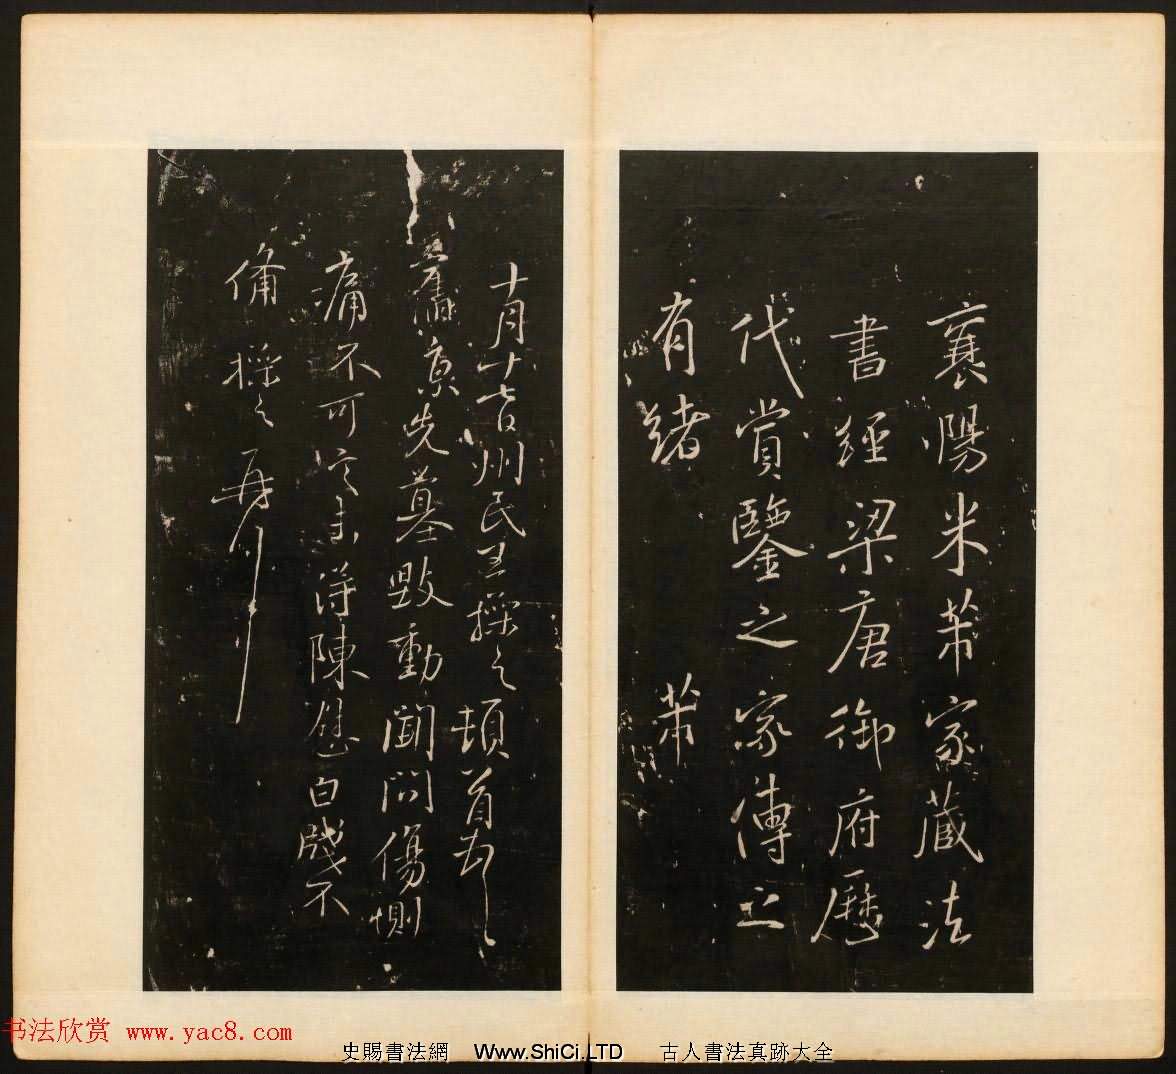 襄陽米芾家藏法
書經梁唐御府歷
代賞鑒之家傳之
有緒 芾
十月十七日州民王操之頓首
舊京先墓毀動聞問傷惻
痛不可言未得陳慰白牋不
備操之再拜
书法欣赏 www.yac8.com
史賜書法網 Www.ShiCi.LTD 古人書法真跡大全